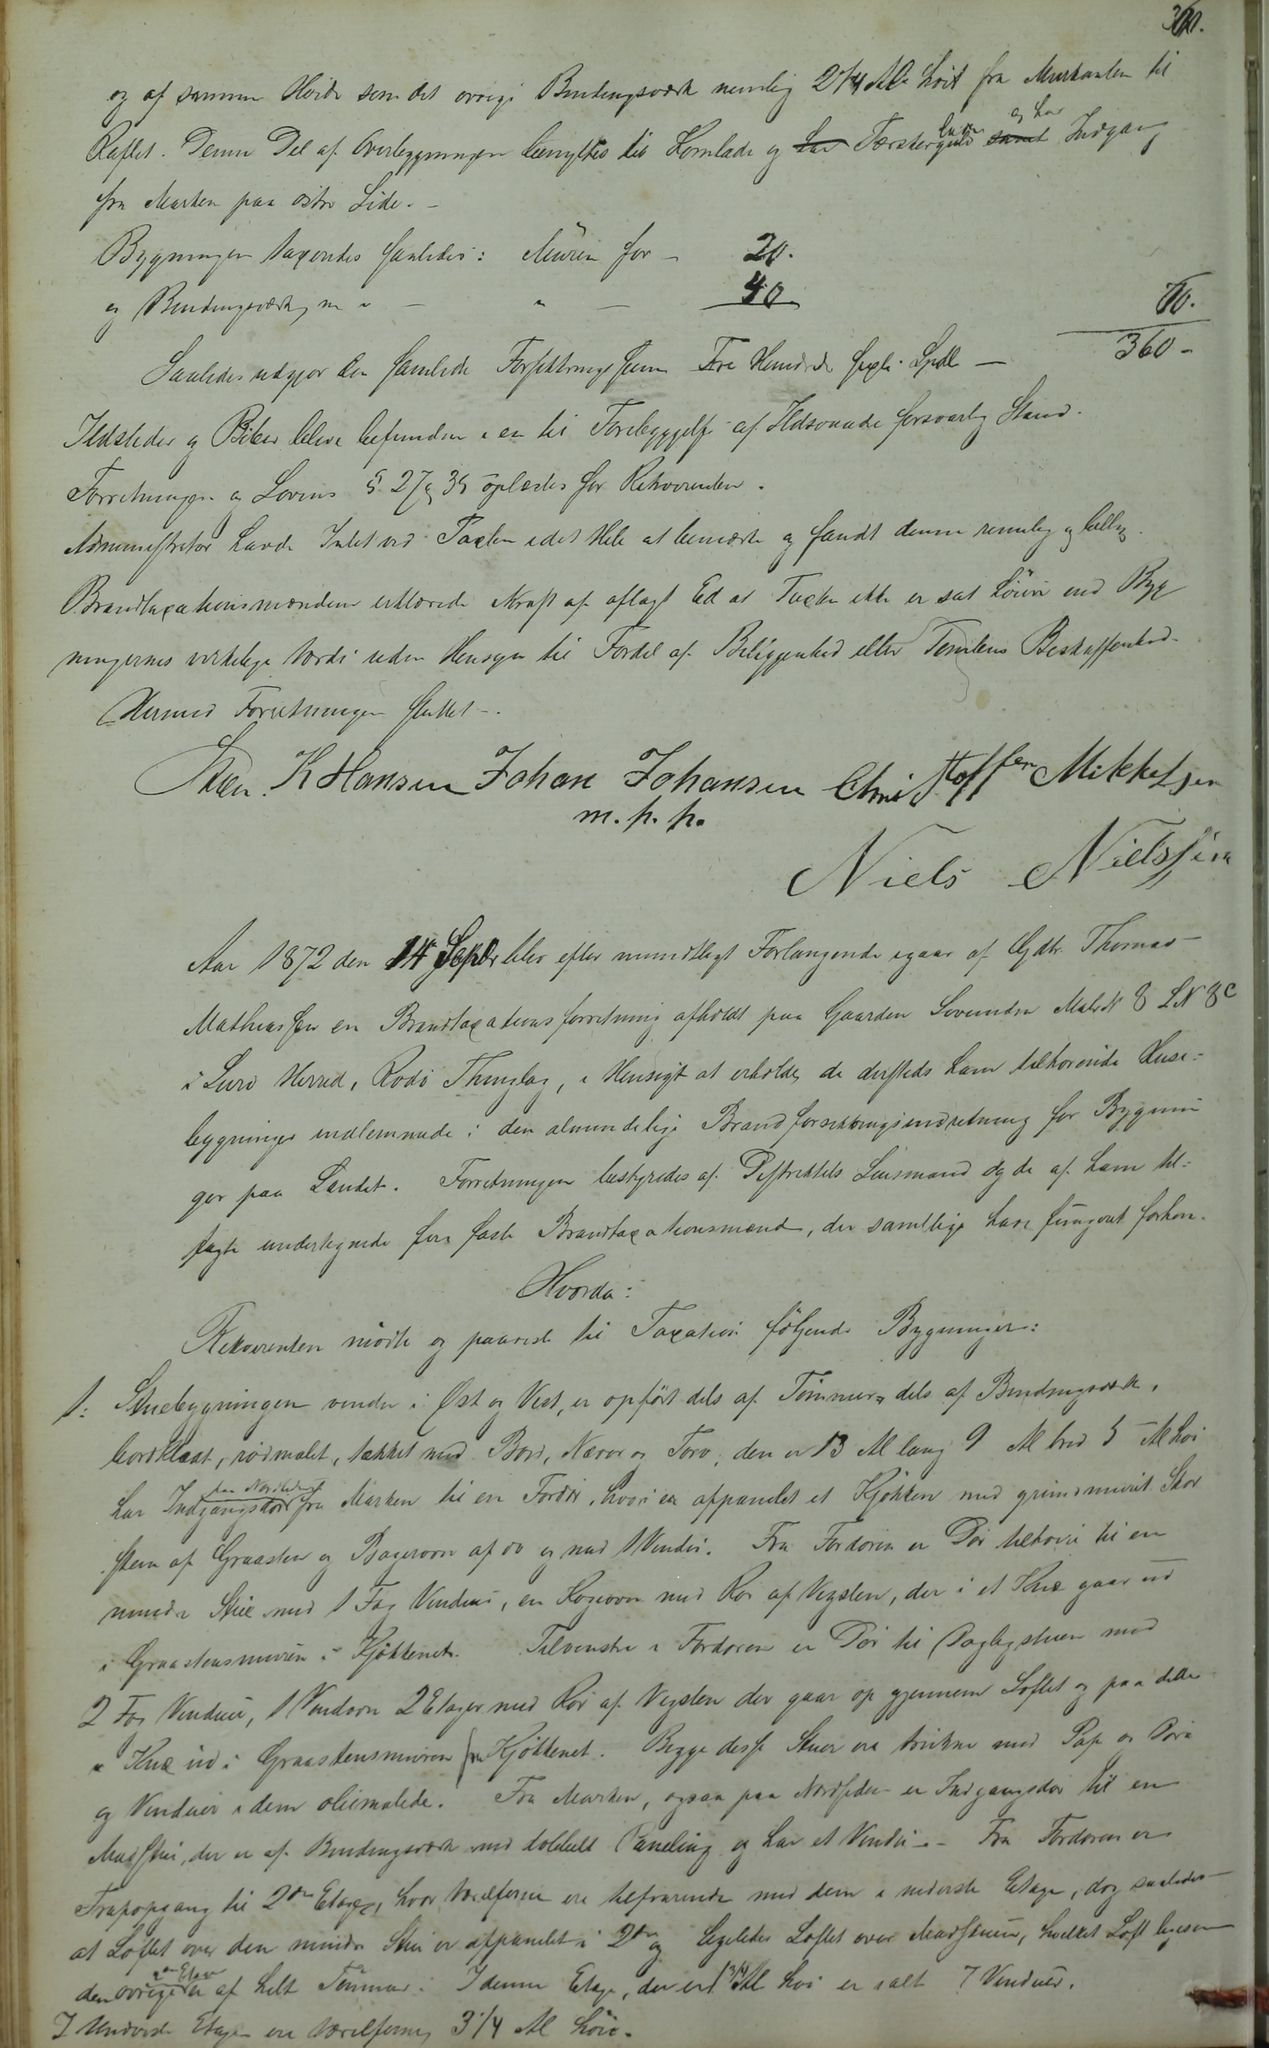 300.
og af samme Höide som det øvrige Bindingsværk nemlig 2 1/4 Al. höit fra Murkanten til
Raftet. Denne Del af Overbygningen benyttes til Kornlade og har Tærskegulv samt og har Indgang
fra Marken paa östre Side. -
Bygningen taxeredes saaledes: Muren for - 20.
og Bindingsværket " - " - 40 60.
Saaledes udgjør den samlede Forsikringssum Tre Hundrede sexti Spdl - 360 -
Ildsteder og Piber bleve befundne i en til Forebyggelse af Ildsvaade forsvarlig Stand.
Forretningen og Lovens § 27 og 38 oplæstes for Rekvirenten.
Administrator havde Intet ved Taxten i det Hele at bemærke og fandt denne rimelig og billig.
Brandtaxationsmændene erklærede i Kraft af aflagt Ed at Taxten ikke er sat höiere end Byg
ningernes virkelige Værdi uden Hensyn til Fordel af Beliggenhed eller Tomtens Beskaffenhed.
Hermed Forretningen sluttet -.
Sten. K Hansen Johan Johansen Christoffer Mikkelsen
m. p. p.
Niels Nielssen
Aar 1872 den 14 Septbr blev efter mundtligt Forlangende igaar af Gdbr. Thomas
Mathiassen en Brandtaxationsforretning afholdt paa Gaarden Sovinden Matr. N 8 LN 8c
i Lurö Herred, Rödö Thinglag, i Hensigt at erholde de dersteds ham tilhörende Huse-
bygninger indlemmede i den almindelige Brandforsikringsindretning for Bygnin
ger paa Landet. Forretningen bestyredes af Distriktets Lensmand og de af ham til-
sagte undertegnede fire faste Brandtaxationsmænd, der samtlige have fungeret forhen.
Hvorda:
Rekvirenten mödte og paaviste til Taxation følgende Bygninger:
1: Stuebygningen vender i Øst og Vest, er opfört dels af Tömmer og dels af Bindingsværk,
bordklædt, rödmalet, tækket med Bord, Næver og Torv, den er 13 Al lang 9 Al bred 5 Al höi
har Indgangsdör paa Nordsiden fra Marken til en Fordör, hvori er afpanelet et Kjökken med grundmuret Skor
sten af Graasten og Bagerovn af do og med 1 Vindu. Fra Fordören er Dör tilhöire til en
mindre Stue med 1 Fag Vinduer, en Kogeovn med Rör af Vegsten, der i et Knæ gaar ud
i Graastensmuren i Kjökkenet. Tilvenstre i Fordören er Dör til Dagligstuen med
2 Fag Vinduer, 1 Vindovn 2 Etager med Rör af Vegsten der gaar op gjennem Loftet og paa dette
i Knæ ud i Graastensmuren fra Kjökkenet. Begge disse Stuer ere trukne med Pap og Döre
og Vinduer i dem oliemalede. Fra Marken, ogsaa paa Nordsiden er Indgangsdör til en
Madstue, der er af Bindingsværk med dobbelt Paneling og har et Vindu. - Fra Fordören er
Trapopgang til 2den Etage, hvor Værelserne ere tilsvarende med dem i nederste Etage, dog saaledes
at Loftet over den mindre Stue er afpanelet i 2de og ligeledes Loftet over Madstuen, hvilket Loft ligesom
den övrige 2den Etage er af helt Tömmer. I denne Etage, der er 1 3/4 Al höi er ialt 7 Vinduer.
I Underste Etage ere Værelserne 3 1/4 Al höie.